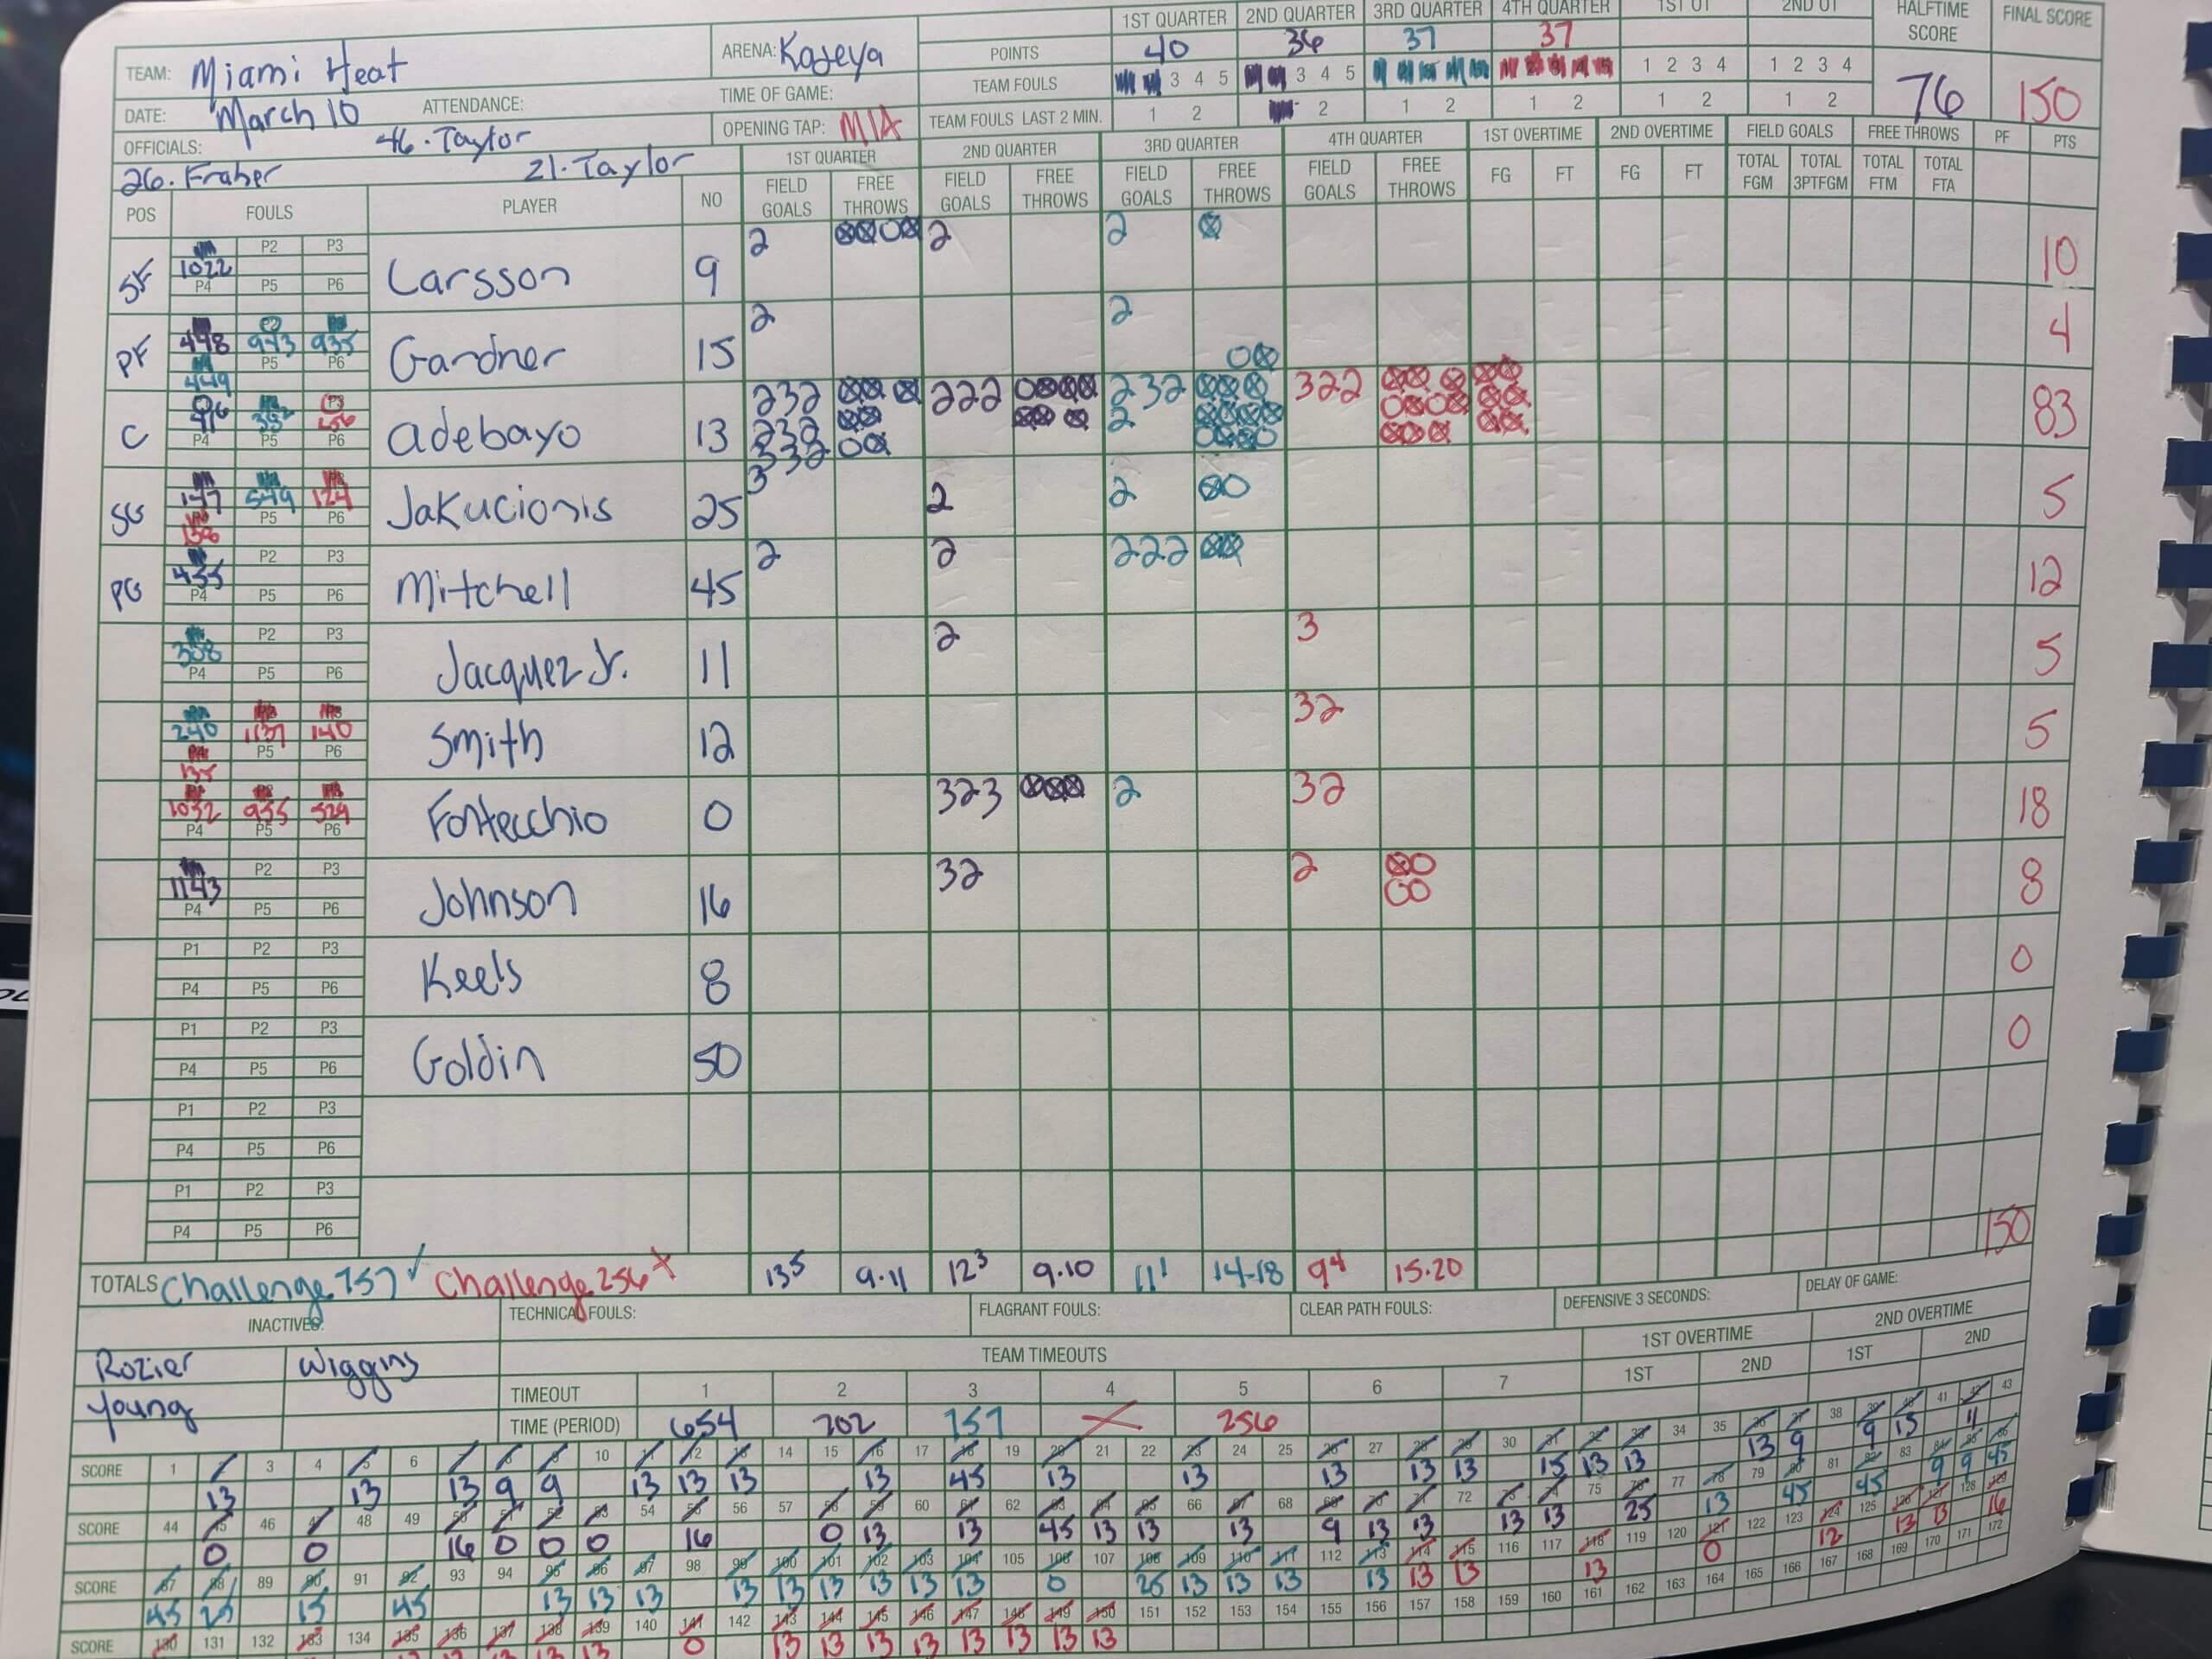 1ST QUARTER 2ND QUARTER 3RD QUARTER 4TH QUARTER 1ST OT 2ND OT HALFTIME SCORE FINAL SCORE
TEAM: Miami Heat ARENA: Kaseya POINTS 40 36 37 37 76 150
TEAM FOULS 3 4 5 3 4 5 1 2 3 4 1 2 3 4
DATE: March 10 ATTENDANCE: TIME OF GAME:
TEAM FOULS LAST 2 MIN. 1 2 2 1 2 1 2 1 2 1 2
OFFICIALS: 46. Taylor OPENING TAP: MIA
26. Fraher 21. Taylor
1ST QUARTER 2ND QUARTER 3RD QUARTER 4TH QUARTER 1ST OVERTIME 2ND OVERTIME FIELD GOALS FREE THROWS PF PTS
POS FOULS PLAYER NO FIELD GOALS FREE THROWS FIELD GOALS FREE THROWS FIELD GOALS FREE THROWS FIELD GOALS FREE THROWS FG FT FG FT TOTAL FGM TOTAL 3PTFGM TOTAL FTM TOTAL FTA
SF P2 P3 1022 P4 P5 P6 Larsson 9 2 2 2 10
PF 448 943 935 P5 P6 449 Gardner 15 2 2 4
C P4 P5 P6 Adebayo 13 232 232 332 222 232 2 322 83
SG 147 549 124 P5 P6 Jakucionis 25 3 2 2 5
PG P2 P3 435 P4 P5 P6 Mitchell 45 2 2 222 12
P2 P3 308 P4 P5 P6 Jacquez Jr. 11 2 3 5
240 1137 140 P5 P6 135 Smith 12 32 5
1032 935 529 P4 P5 P6 Fontecchio 0 323 2 32 18
P2 P3 1143 P4 P5 P6 Johnson 16 32 2 8
P1 P2 P3 P4 P5 P6 Keels 8 0
P1 P2 P3 P4 P5 P6 Goldin 50 0
P1 P2 P3
P4 P5 P6
P1 P2 P3
P4 P5 P6
150
TOTALS Challenge 757 ✓ Challenge 256 X 13 5 9-11 12 3 9-10 11 1 14-18 9 4 15-20
INACTIVES: TECHNICAL FOULS: FLAGRANT FOULS: CLEAR PATH FOULS: DEFENSIVE 3 SECONDS: DELAY OF GAME:
Rozier Wiggins TEAM TIMEOUTS 1ST OVERTIME 2ND OVERTIME
Young TIMEOUT 1 2 3 4 5 6 7 1ST 2ND 1ST 2ND
TIME (PERIOD) 654 202 757 X 256
SCORE 1 2 3 4 5 6 7 8 9 10 11 12 13 14 15 16 17 18 19 20 21 22 23 24 25 26 27 28 29 30 31 32 33 34 35 36 37 38 39 40 41 42 43
13 13 13 9 9 13 13 13 13 45 13 13 13 13 13 15 13 13 13 9 9 15 11
SCORE 44 45 46 47 48 49 50 51 52 53 54 55 56 57 58 59 60 61 62 63 64 65 66 67 68 69 70 71 72 73 74 75 76 77 78 79 80 81 82 83 84 85 86
0 0 16 0 0 0 16 0 13 13 45 13 13 13 9 13 13 13 13 25 13 45 45 9 9 45
SCORE 87 88 89 90 91 92 93 94 95 96 97 98 99 100 101 102 103 104 105 106 107 108 109 110 111 112 113 114 115 116 117 118 119 120 121 122 123 124 125 126 127 128 129
45 25 15 45 13 13 13 13 13 13 13 13 13 0 25 13 13 13 13 13 13 13 0 12 13 13 16
SCORE 130 131 132 133 134 135 136 137 138 139 140 141 142 143 144 145 146 147 148 149 150 151 152 153 154 155 156 157 158 159 160 161 162 163 164 165 166 167 168 169 170 171 172
0 13 13 13 13 13 13 13 13